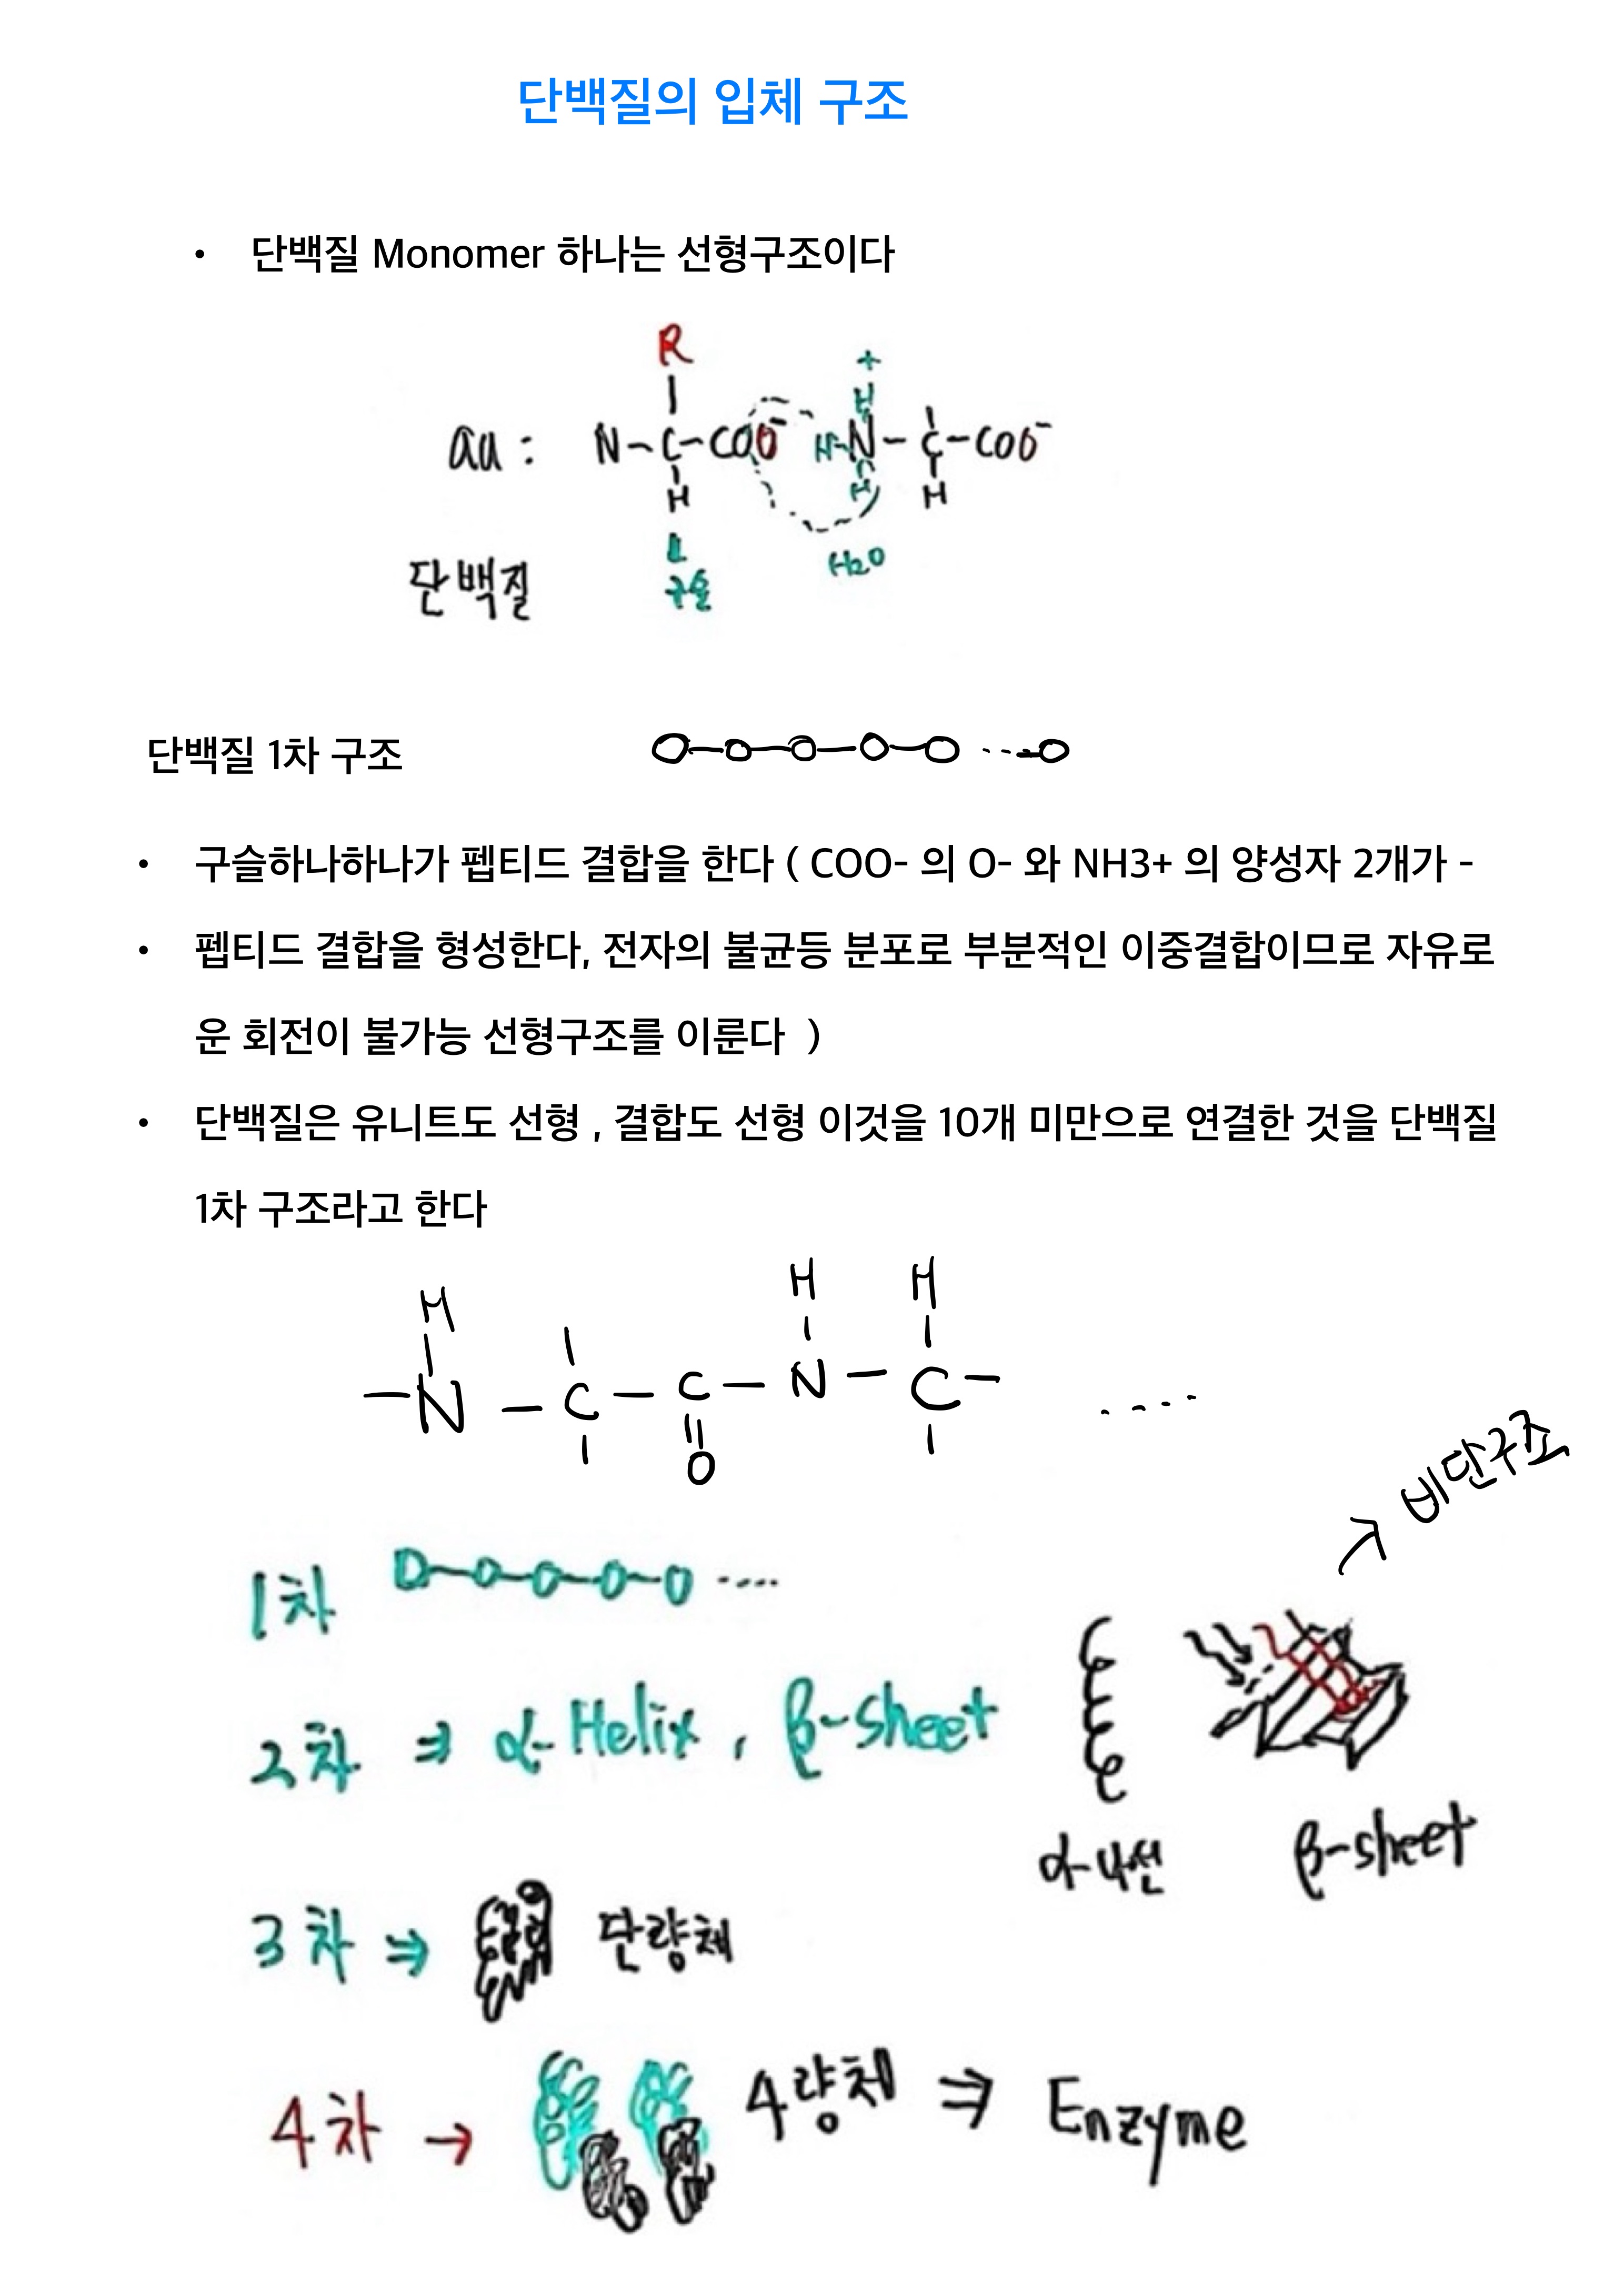 단백질의 입체 구조
• 단백질 Monomer 하나는 선형구조이다
R
+
H
aa : N-C-COO⁻ H-N-C-COO⁻
H H H
구슬 H2O
단백질
단백질 1차 구조
• 구슬하나하나가 펩티드 결합을 한다 ( COO- 의 O- 와 NH3+ 의 양성자 2개가 -
• 펩티드 결합을 형성한다, 전자의 불균등 분포로 부분적인 이중결합이므로 자유로
운 회전이 불가능 선형구조를 이룬다 )
• 단백질은 유니트도 선형 , 결합도 선형 이것을 10개 미만으로 연결한 것을 단백질
1차 구조라고 한다
H H H
-N-C-C-N-C- ....
O
→ 비단구조
1차 ....
2차 ⇒ α-Helix, β-sheet
α-나선 β-sheet
3차 ⇒ 단량체
4차 → 4량체 ⇒ Enzyme